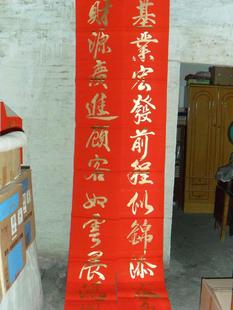 基業宏發前程似錦添
財源廣進顧客如雲展